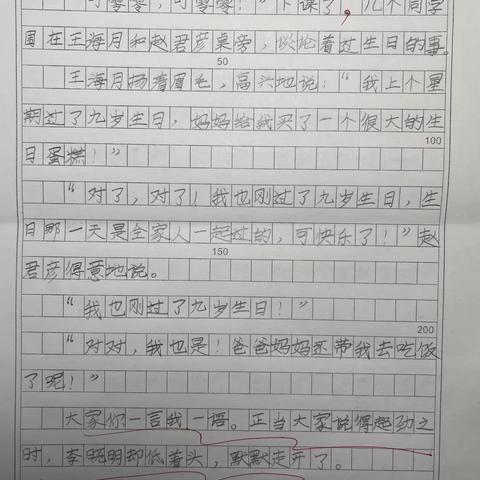 可零零，可零零！”下课了，几个同学
围在王海月和赵君彦桌旁，谈论着过生日的事。
50
王海月扬着眉毛，高兴地说：“我上个星
期过了九岁生日，妈妈给我买了一个很大的生
100
日蛋糕！”
“对了，对了！我也刚过了九岁生日，生
日那一天是全家人一起过的，可快乐了！”赵
150
君彦得意地说。
“我也刚过了九岁生日！”
200
“对对，我也是！爸爸妈妈还带我去吃饭
了呢！”
大家你一言我一语。正当大家说得起劲之
时，李晓明却低着头，默默走开了。